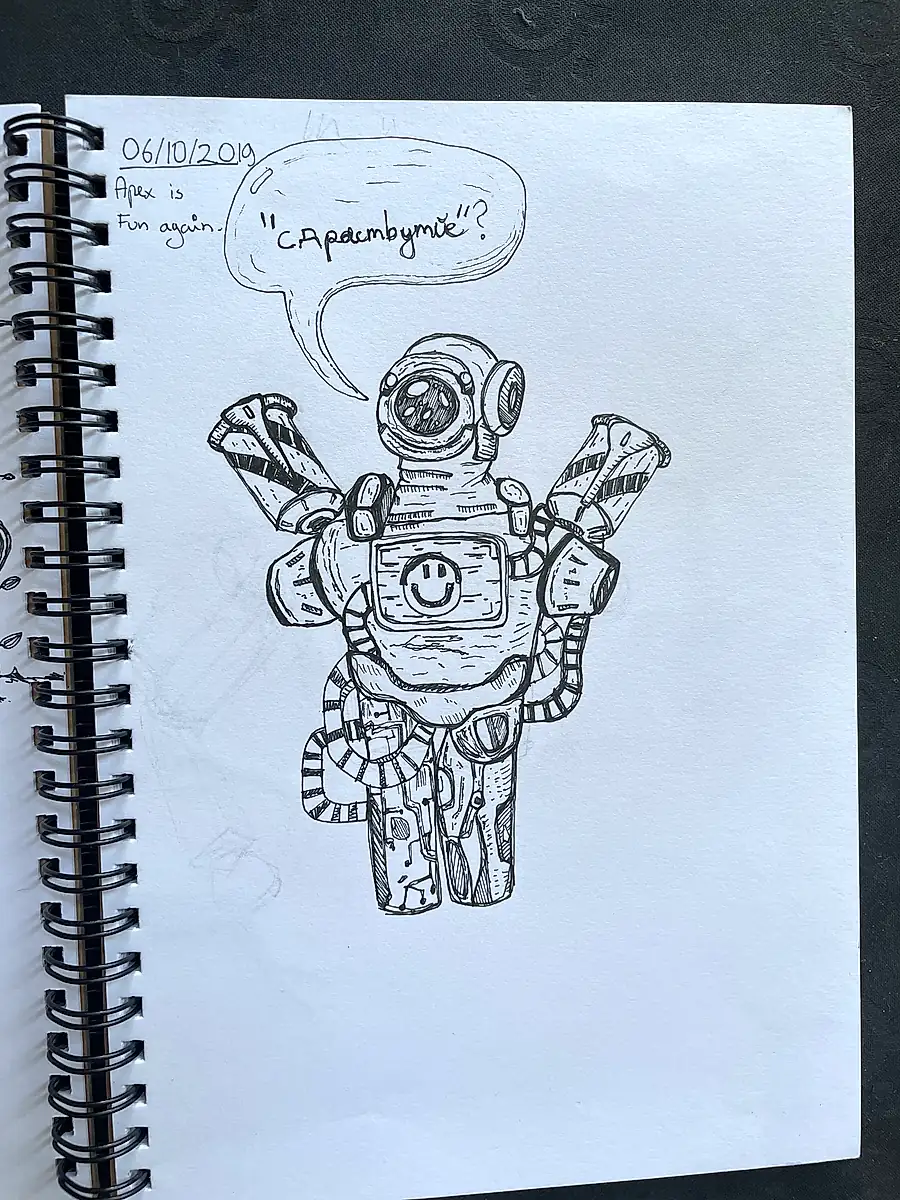 06/10/2019
Apex is
Fun again.
"сдраствутйе"?